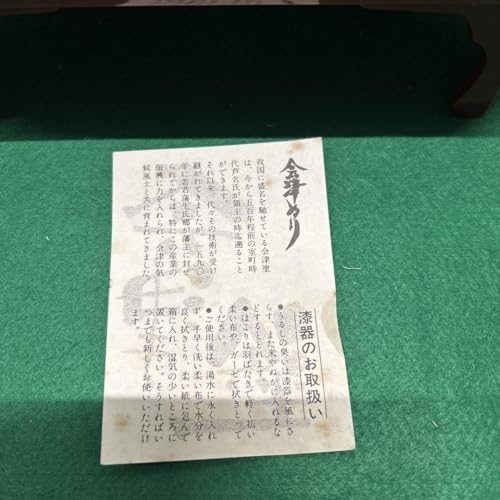 会津ぬり
我国に盛名を馳せている会津塗
は、今から五百年程前の室町時
代芦名氏が領主の時迄遡ること
ができます。
それ以来、代々その技術が受け
継がれてきましたが、一五九〇
年に若君蒲生氏郷が藩主に封ぜ
られてからは、特にこの産業の
振興に力を入れられ、会津の気
候風土と共に育まれてきました。
漆器のお取扱い
●うるしの臭いは漆器を風にさ
らす、また米やぬかに入れるな
どするととれます。
●ほこりは羽ばたきで軽く払い
柔い布や、ガーゼで拭きとって
ください。
●ご使用後は、湯水に永く入れ
ず、手早く洗い柔い布で水分を
良く拭きとり、柔い紙に包んで
箱に入れ、湿気の少いところに
置いてください。そうすればい
つまでも新しくお使いいただけ
ます。